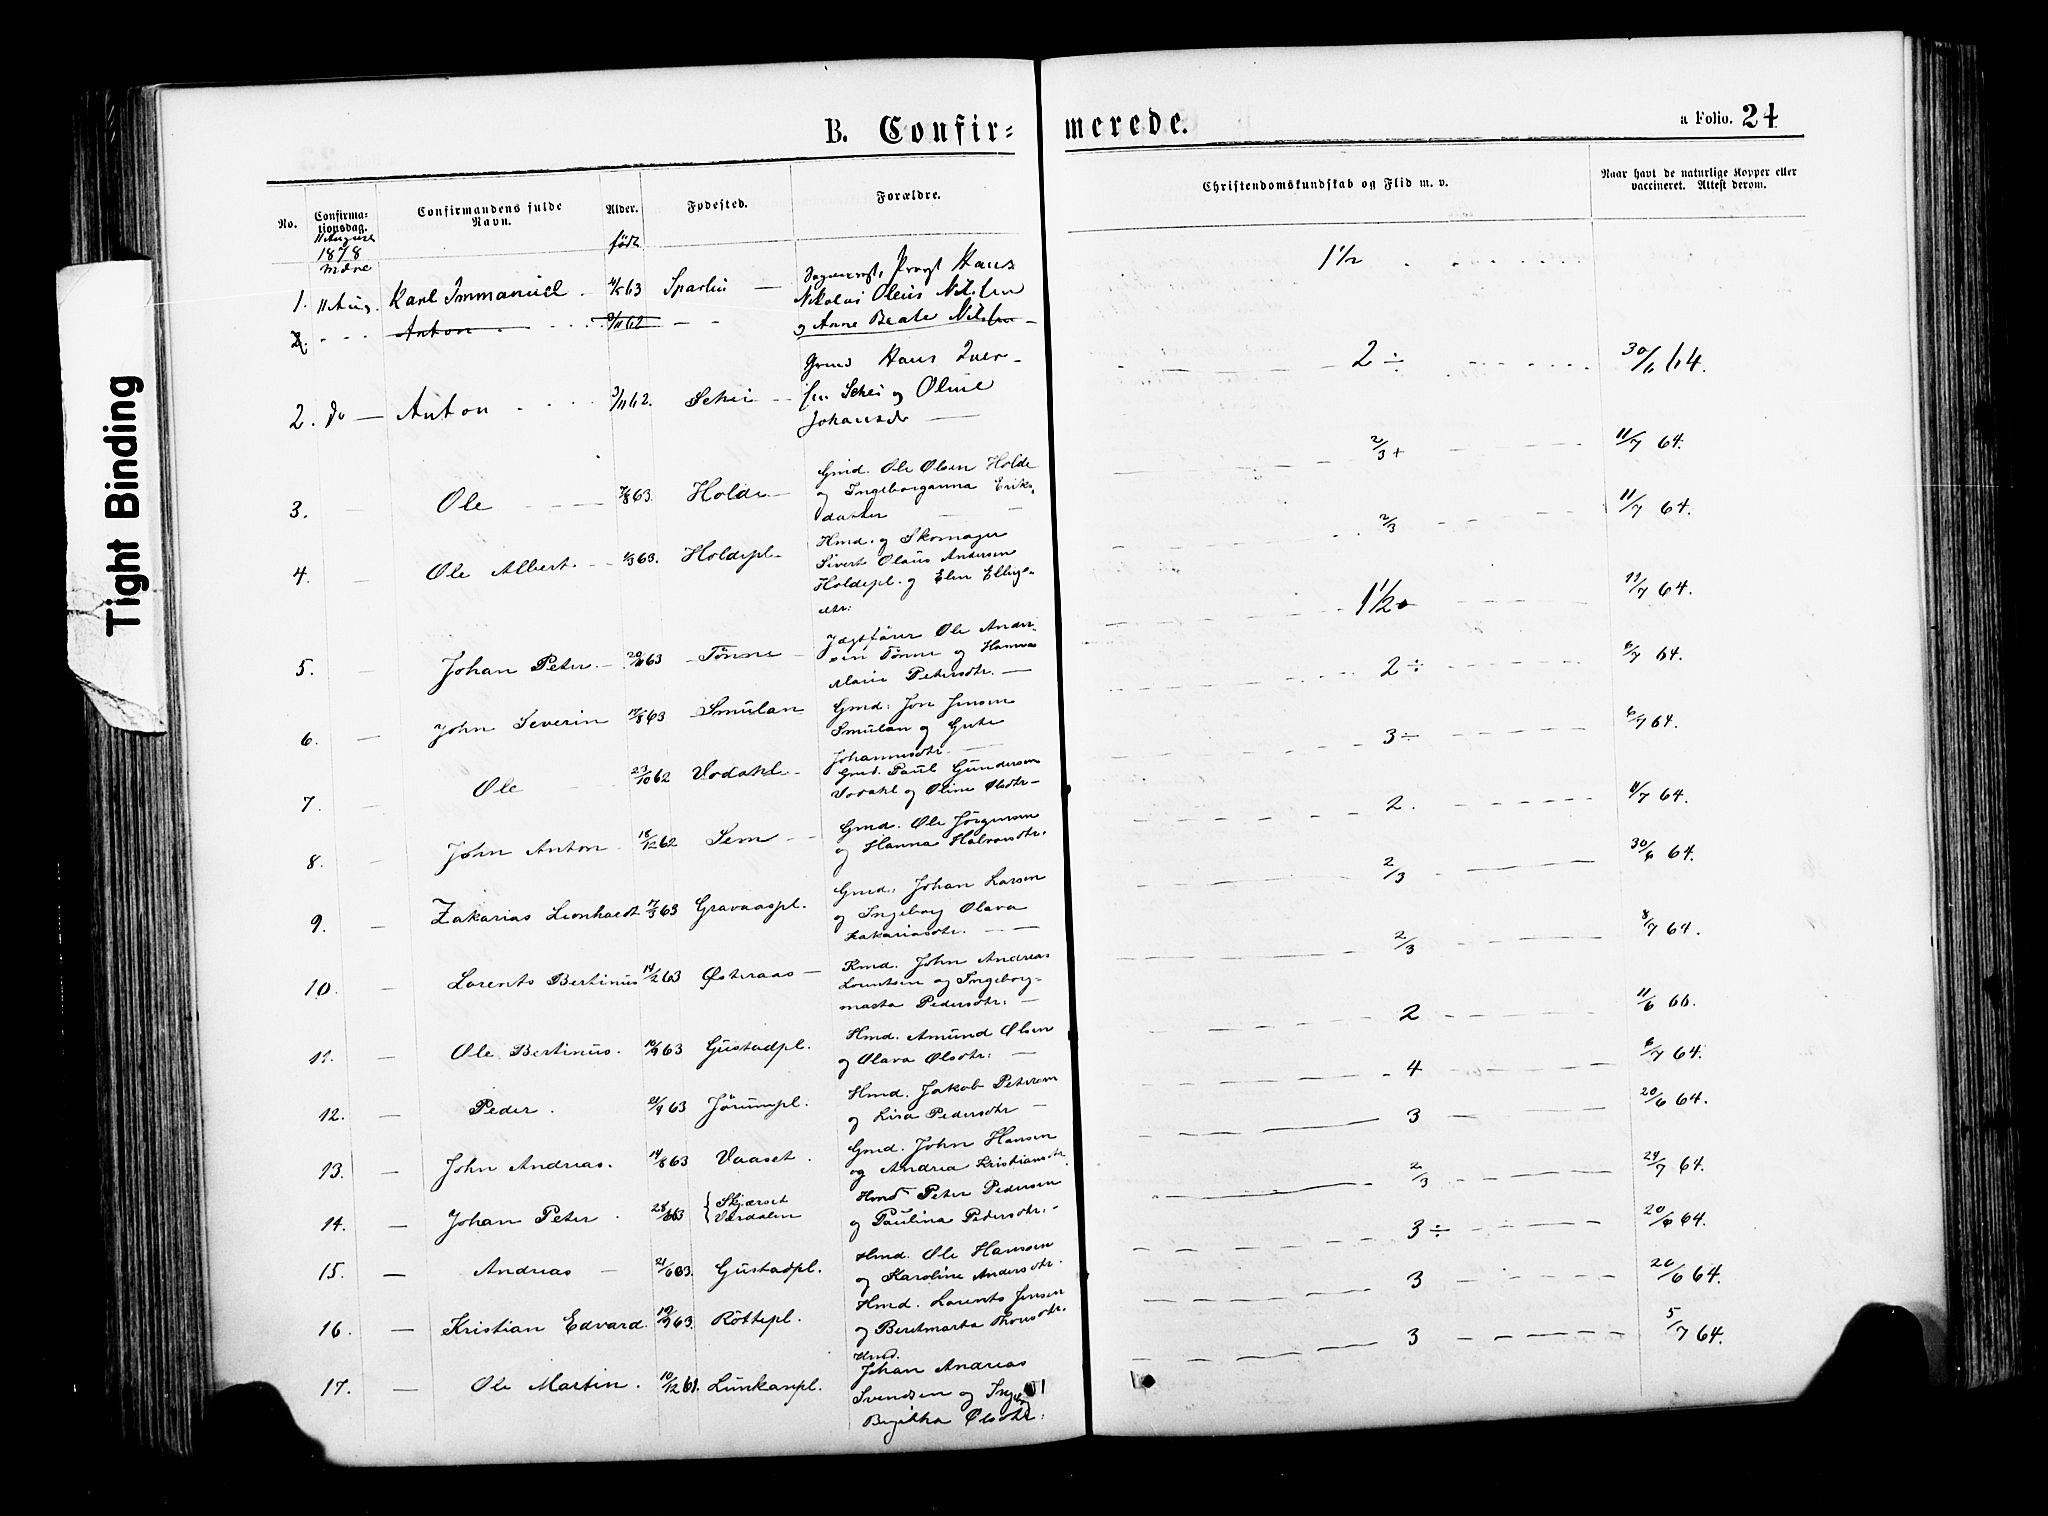 Tight Binding
B. Confir= merede.
a Folio. 24
No.
Confirma-
tionsdag.
Confirmandens fulde
Navn.
Alder.
Fødested.
Forældre.
Christendomskundskab og Flid m. v.
Naar havt de naturlige Kopper eller
vaccineret. Attest derom.
11 August
1878
Mære
født
1. 11 Aug. Karl Immanuel 63 Hans
Nikolai Oleus Nilsen
og Anne Beate Nilsen 1½
2. Anton 3/11 62
2. do Anton 3/11 62. Schei Hans Iver-
sen Schei og Oline
Johansdr 2 ÷ 30/6 64.
3. Ole 7/8 63. Holde Gmd. Ole Olsen Holde
og Ingeborganna Eriks-
datter 2/3 + 11/7 64.
4. Ole Albert 63. Holdepl. Hmd. og Skomager
Sivert Olaus Andersen
Holdepl. og Elen Ellings-
dtr: 2/3 11/7 64.
5. Johan Peter 20/11 63 Tönne Jægtfører Ole Ander-
sen Tönne og Hanna
Marie Petersdtr. 1½ 11/7 64.
6. John Severin 17/8 63 Smülan Gmd: Jon Jensen
Smülan og
Johannesdtr. 2 ÷ 6/7 64.
7. Ole 23/10 62 Vodahl Gmd. Paul Gundersen
Vodahl og Oline Olsdtr 3 ÷ 6/7 64.
8. John Anton 18/12 62 Sem Gmd. Ole Jörgensen
og Hanna Halvorsdtr. 2. 64.
9. Zakarias Leonhardt 17/3 63 Gravaaspl. Gmd: Johan Larsen
og Ingeborg Olava
Zakariasdtr. 2/3 30/6 64.
10. Lorents Bertinus 14/2 63 Østeraas John Andreas
Lorentsen og Ingeborg-
marta Pedersdtr: 2/3 8/7 64.
11. Ole Bertinus. 10/9 63 Gustadpl. Hmd. Amund Olsen
og Olava Olsdtr: 2 11/6 66.
12. Peder. 21/9 63 Jörumpl. Hmd. Jakob Petersen
og Lisa Pedersdtr 4 6/7 64.
13. John Andreas. 14/8 63 Vaaset. Gmd. John Hansen
og Andrea Kristiansdtr. 3 20/6 64.
14. Johan Peter 63 Skjærset
Værdalen Hmd Peter Pedersen
og Paulina Pedersdtr: 2/3 24/7 64.
15. Andreas 21/6 63. Gustadpl. Hmd. Ole Hansen
og Karoline Andersdtr. 3 ÷ 20/6 64.
16. Kristian Edvard. 19/9 63. Röttepl. Hmd. Lorents Jensen
og Beretmarta 3 20/6 64.
17. Ole Martin. 10/12 61. Lünkanpl. Hmd.
Johan Andreas
Svendsen og
Olsdtr: 3 5/7 64.